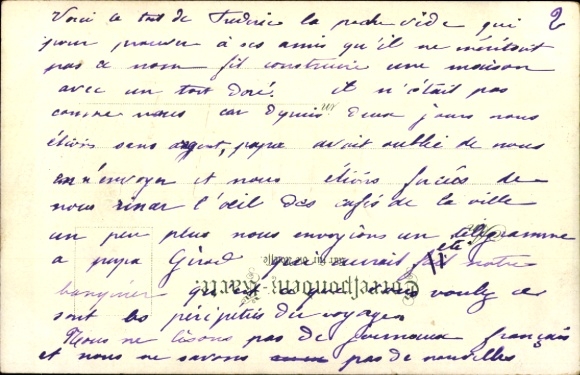 2
Voici le toit de Frédéric la poche vide qui
pour prouver à ses amis qu'il ne méritait
pas ce nom fit construire une maison
avec un toit doré. il n'était pas
comme nous car depuis deux jours nous
étions sans argent, papa avait oublié de nous
en envoyer et nous étions forcés de
nous rincer l'œil des cafés de la ville
un peu plus nous envoyions un télégramme
a papa Girod qui aurait été notre
banquier que voulez
sont les péripéties du voyage
Nous ne lisons pas de journaux français
et nous ne savons pas de nouvelles
Correspondenz-Karte